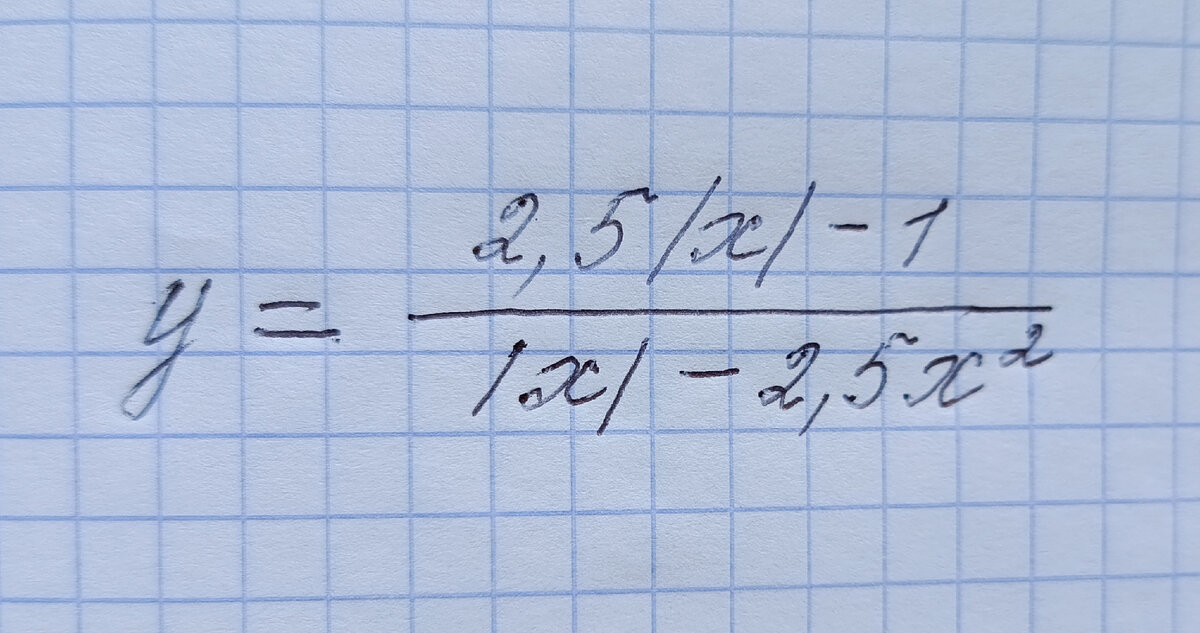 y = (2,5|x| - 1) / (|x| - 2,5x²)